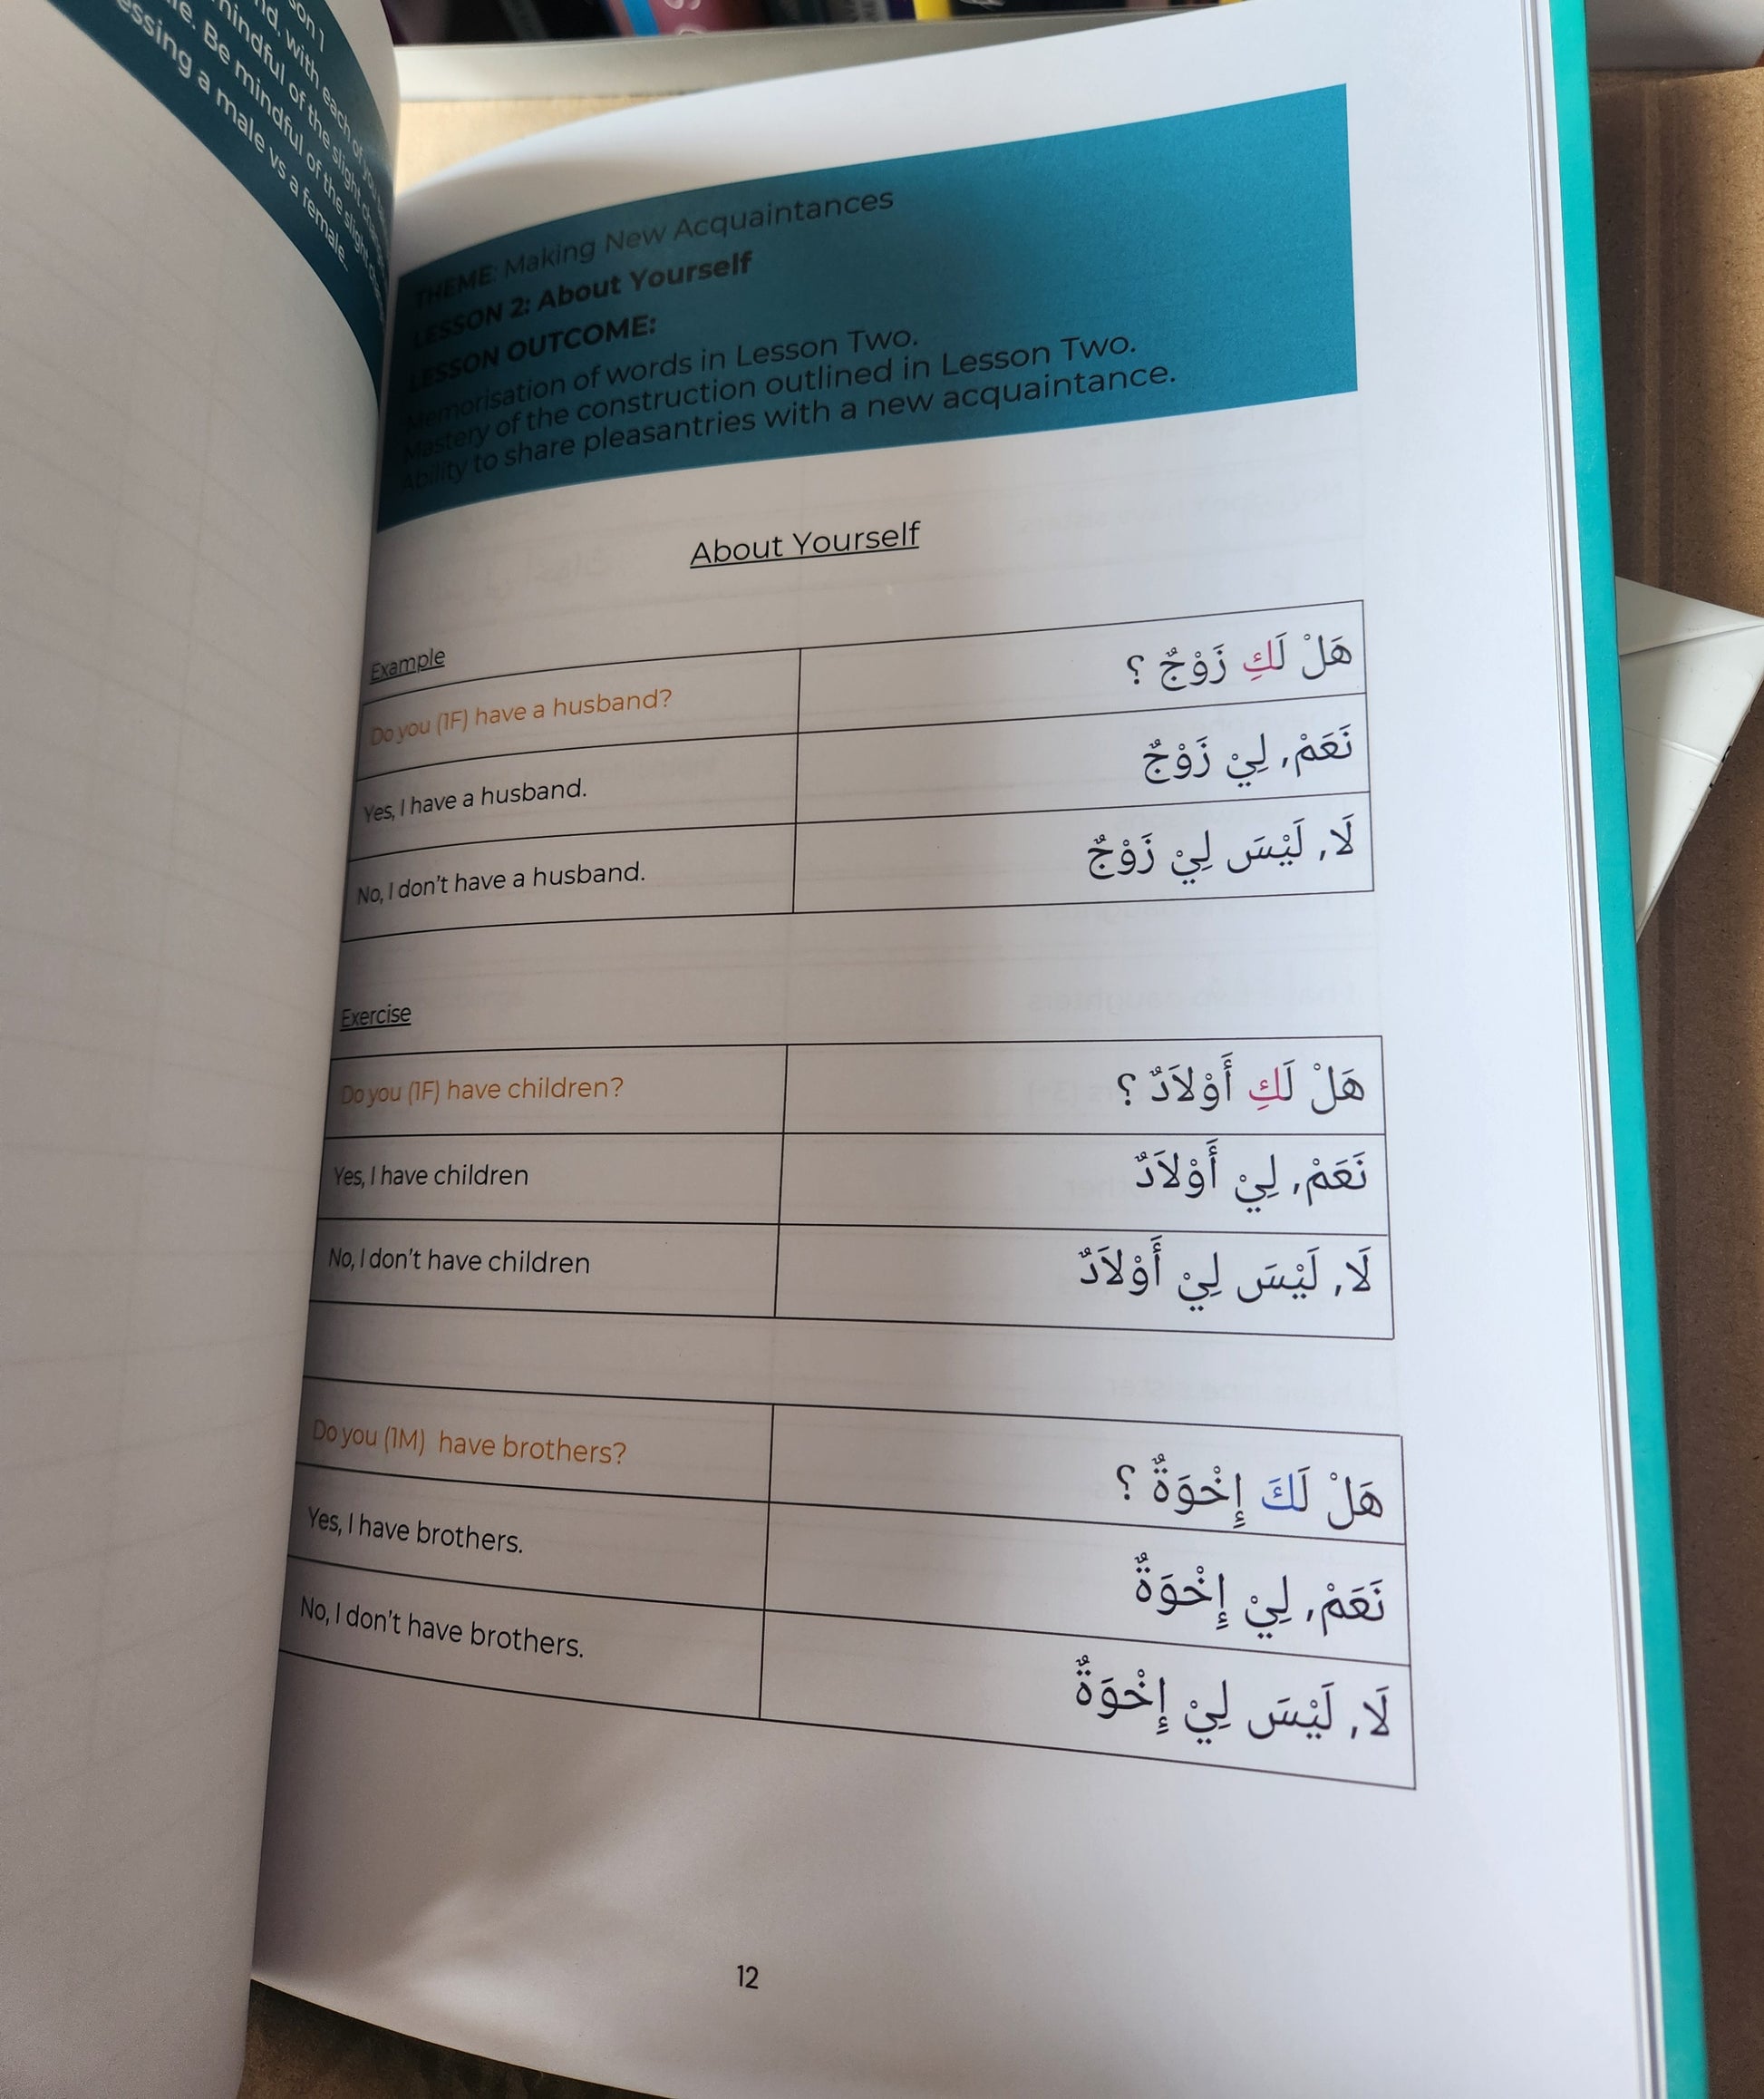 son 1
nd, with each of you
mindful of the slight
le. Be mindful of the slight
essing a male vs a female.
THEME: Making New Acquaintances
LESSON 2: About Yourself
LESSON OUTCOME:
Memorisation of words in Lesson Two.
Mastery of the construction outlined in Lesson Two.
Ability to share pleasantries with a new acquaintance.
About Yourself
Example
Do you (1F) have a husband?
هَلْ لَكِ زَوْجٌ ؟
Yes, I have a husband.
نَعَمْ, لِيْ زَوْجٌ
No, I don't have a husband.
لَا, لَيْسَ لِيْ زَوْجٌ
Exercise
Do you (1F) have children?
هَلْ لَكِ أَوْلَادٌ ؟
Yes, I have children
نَعَمْ, لِيْ أَوْلَادٌ
No, I don't have children
لَا, لَيْسَ لِيْ أَوْلَادٌ
Do you (1M) have brothers?
هَلْ لَكَ إِخْوَةٌ ؟
Yes, I have brothers.
نَعَمْ, لِيْ إِخْوَةٌ
No, I don't have brothers.
لَا, لَيْسَ لِيْ إِخْوَةٌ
12